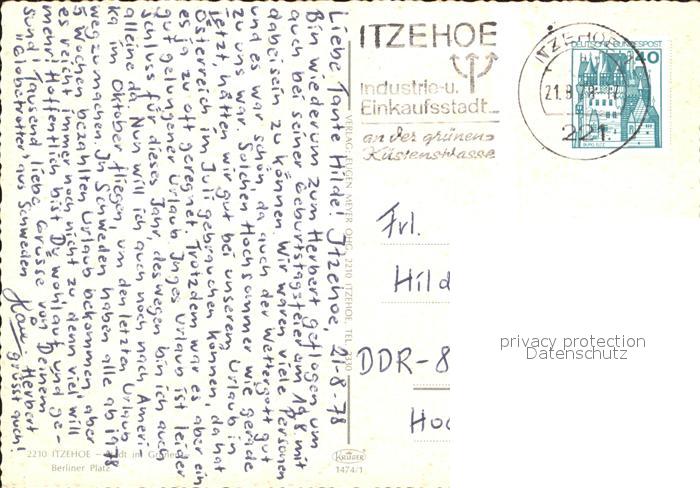 Liebe Tante Hilde! Itzehoe, 21-8-78
Bin wiederum zum Herbert geflogen um
auch bei seiner Geburtstagsfeier am 19/8 mit
dabeisein zu können. Wir waren viele Personen
und es war schön, da auch der Wettergott gut
zu uns war. Solchen Hochsommer wie gerade
jetzt hätten wir gut bei unserem Urlaub in
Österreich im Juli gebrauchen können, da hat
es ja zu oft geregnet. Trotzdem war es aber ein
gut gelungener Urlaub. Inges Urlaub ist leider
Schluss für dieses Jahr, deswegen bin ich auch
alleine da. Nun will ich auch noch nach Ameri-
ka im Oktober fliegen, um den letzten Urlaub
wegzumachen. In Schweden haben alle ab 1978
5 Wochen bezahlten Urlaub bekommen, aber
es reicht immer noch nicht zu denn viel, will
mehr! Hoffentlich bist Du wohlauf und ge-
sund! Tausend liebe Grüsse von Deinem
"Globetrotter" aus Schweden Herbert
grüsst auch!
2210 ITZEHOE – Stadt im Grünen
Berliner Platz
VERLAG EUGEN MEYER OHG, 2210 ITZEHOE, TEL.
KRÜGER
1474/1
ITZEHOE
Industrie-u.
Einkaufsstadt
an der grünen
Küstenstrasse
ITZEHOE
21.8.78
221
DEUTSCHE BUNDESPOST
40
BURG ELTZ
Frl.
Hild
DDR-8
Hoc
privacy protection
Datenschutz